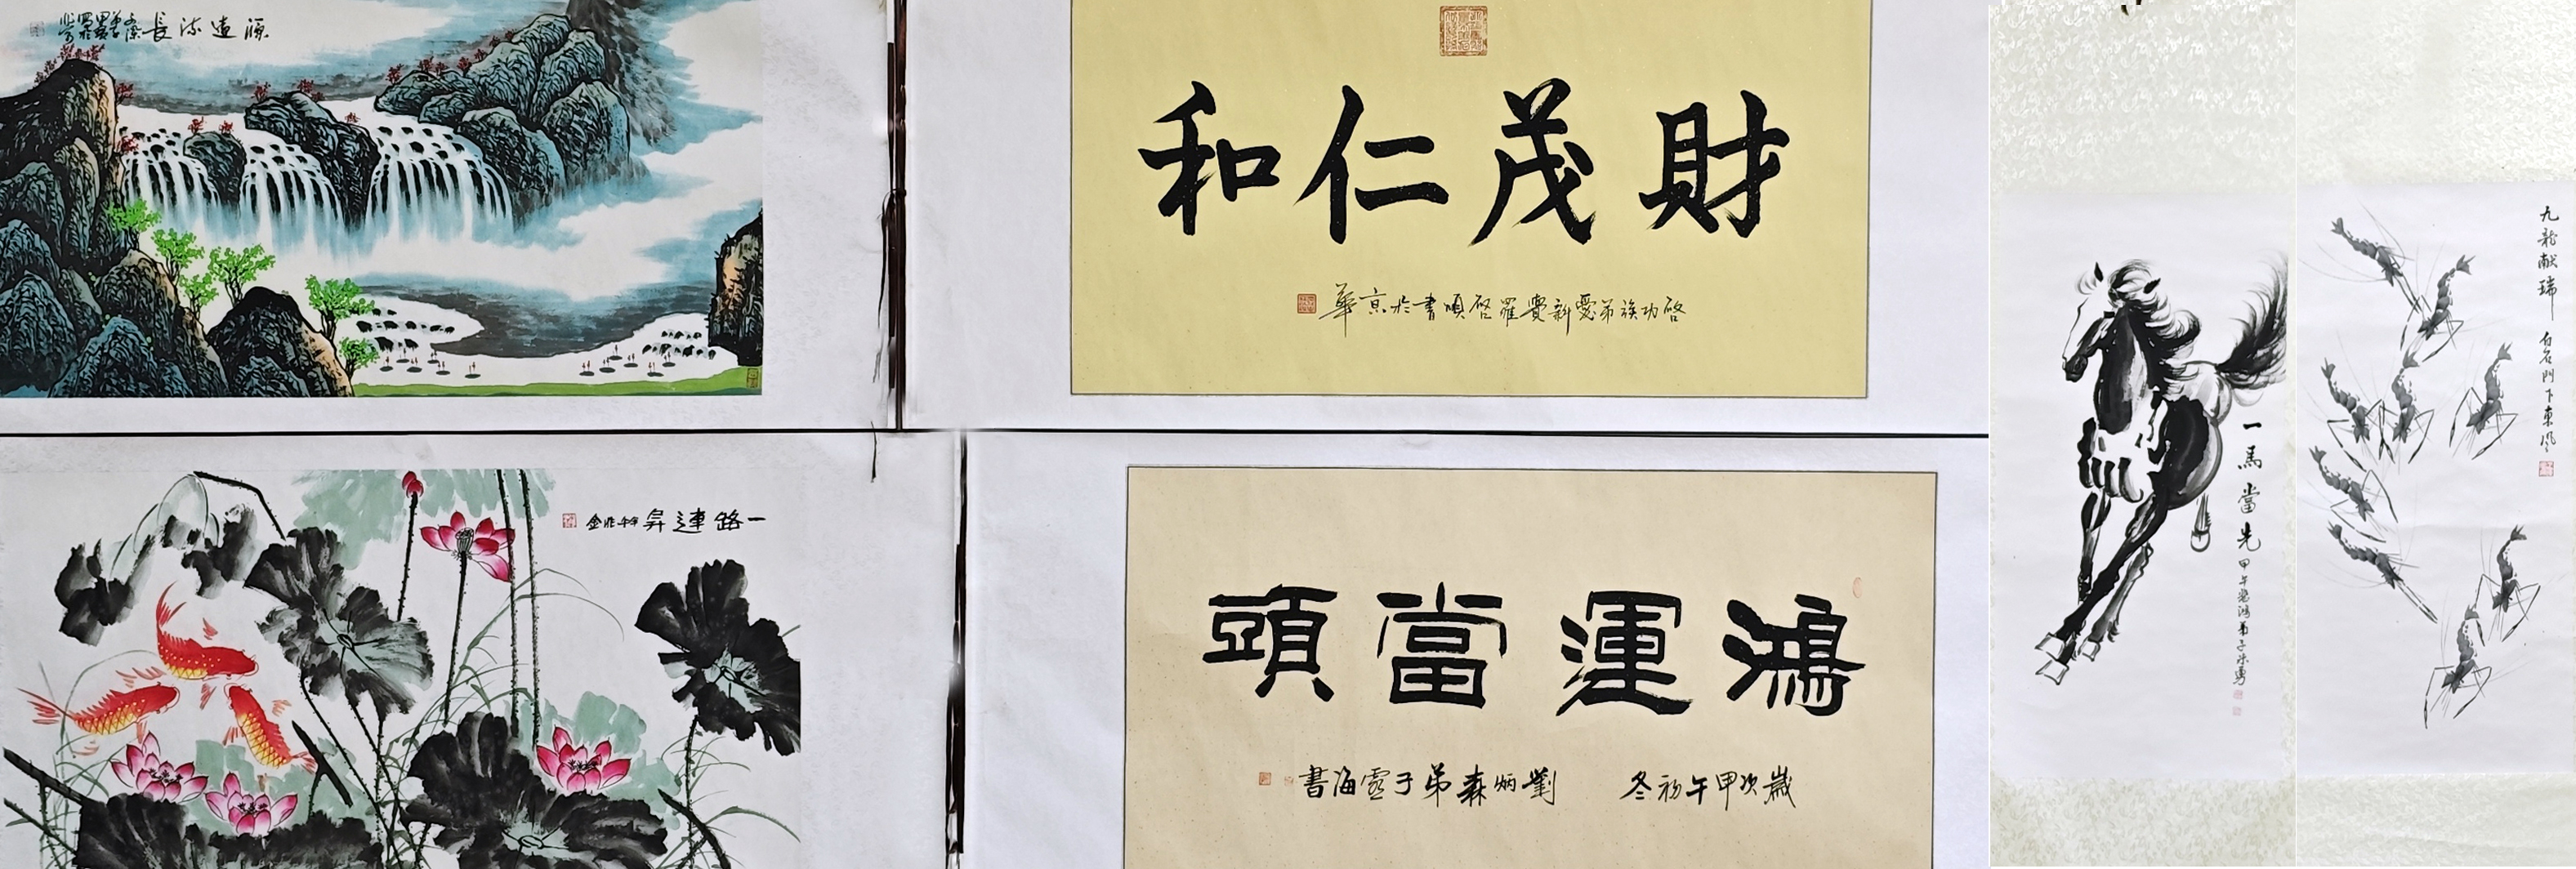 源遠流長
財茂仁和
啓功族弟愛新覺羅啓頌書於京華
一路連昇
鴻運當頭
歲次甲午初冬 劉炳森弟子雲海書
一馬當先
甲午悲鴻弟子
九龍献瑞 白石門下東風